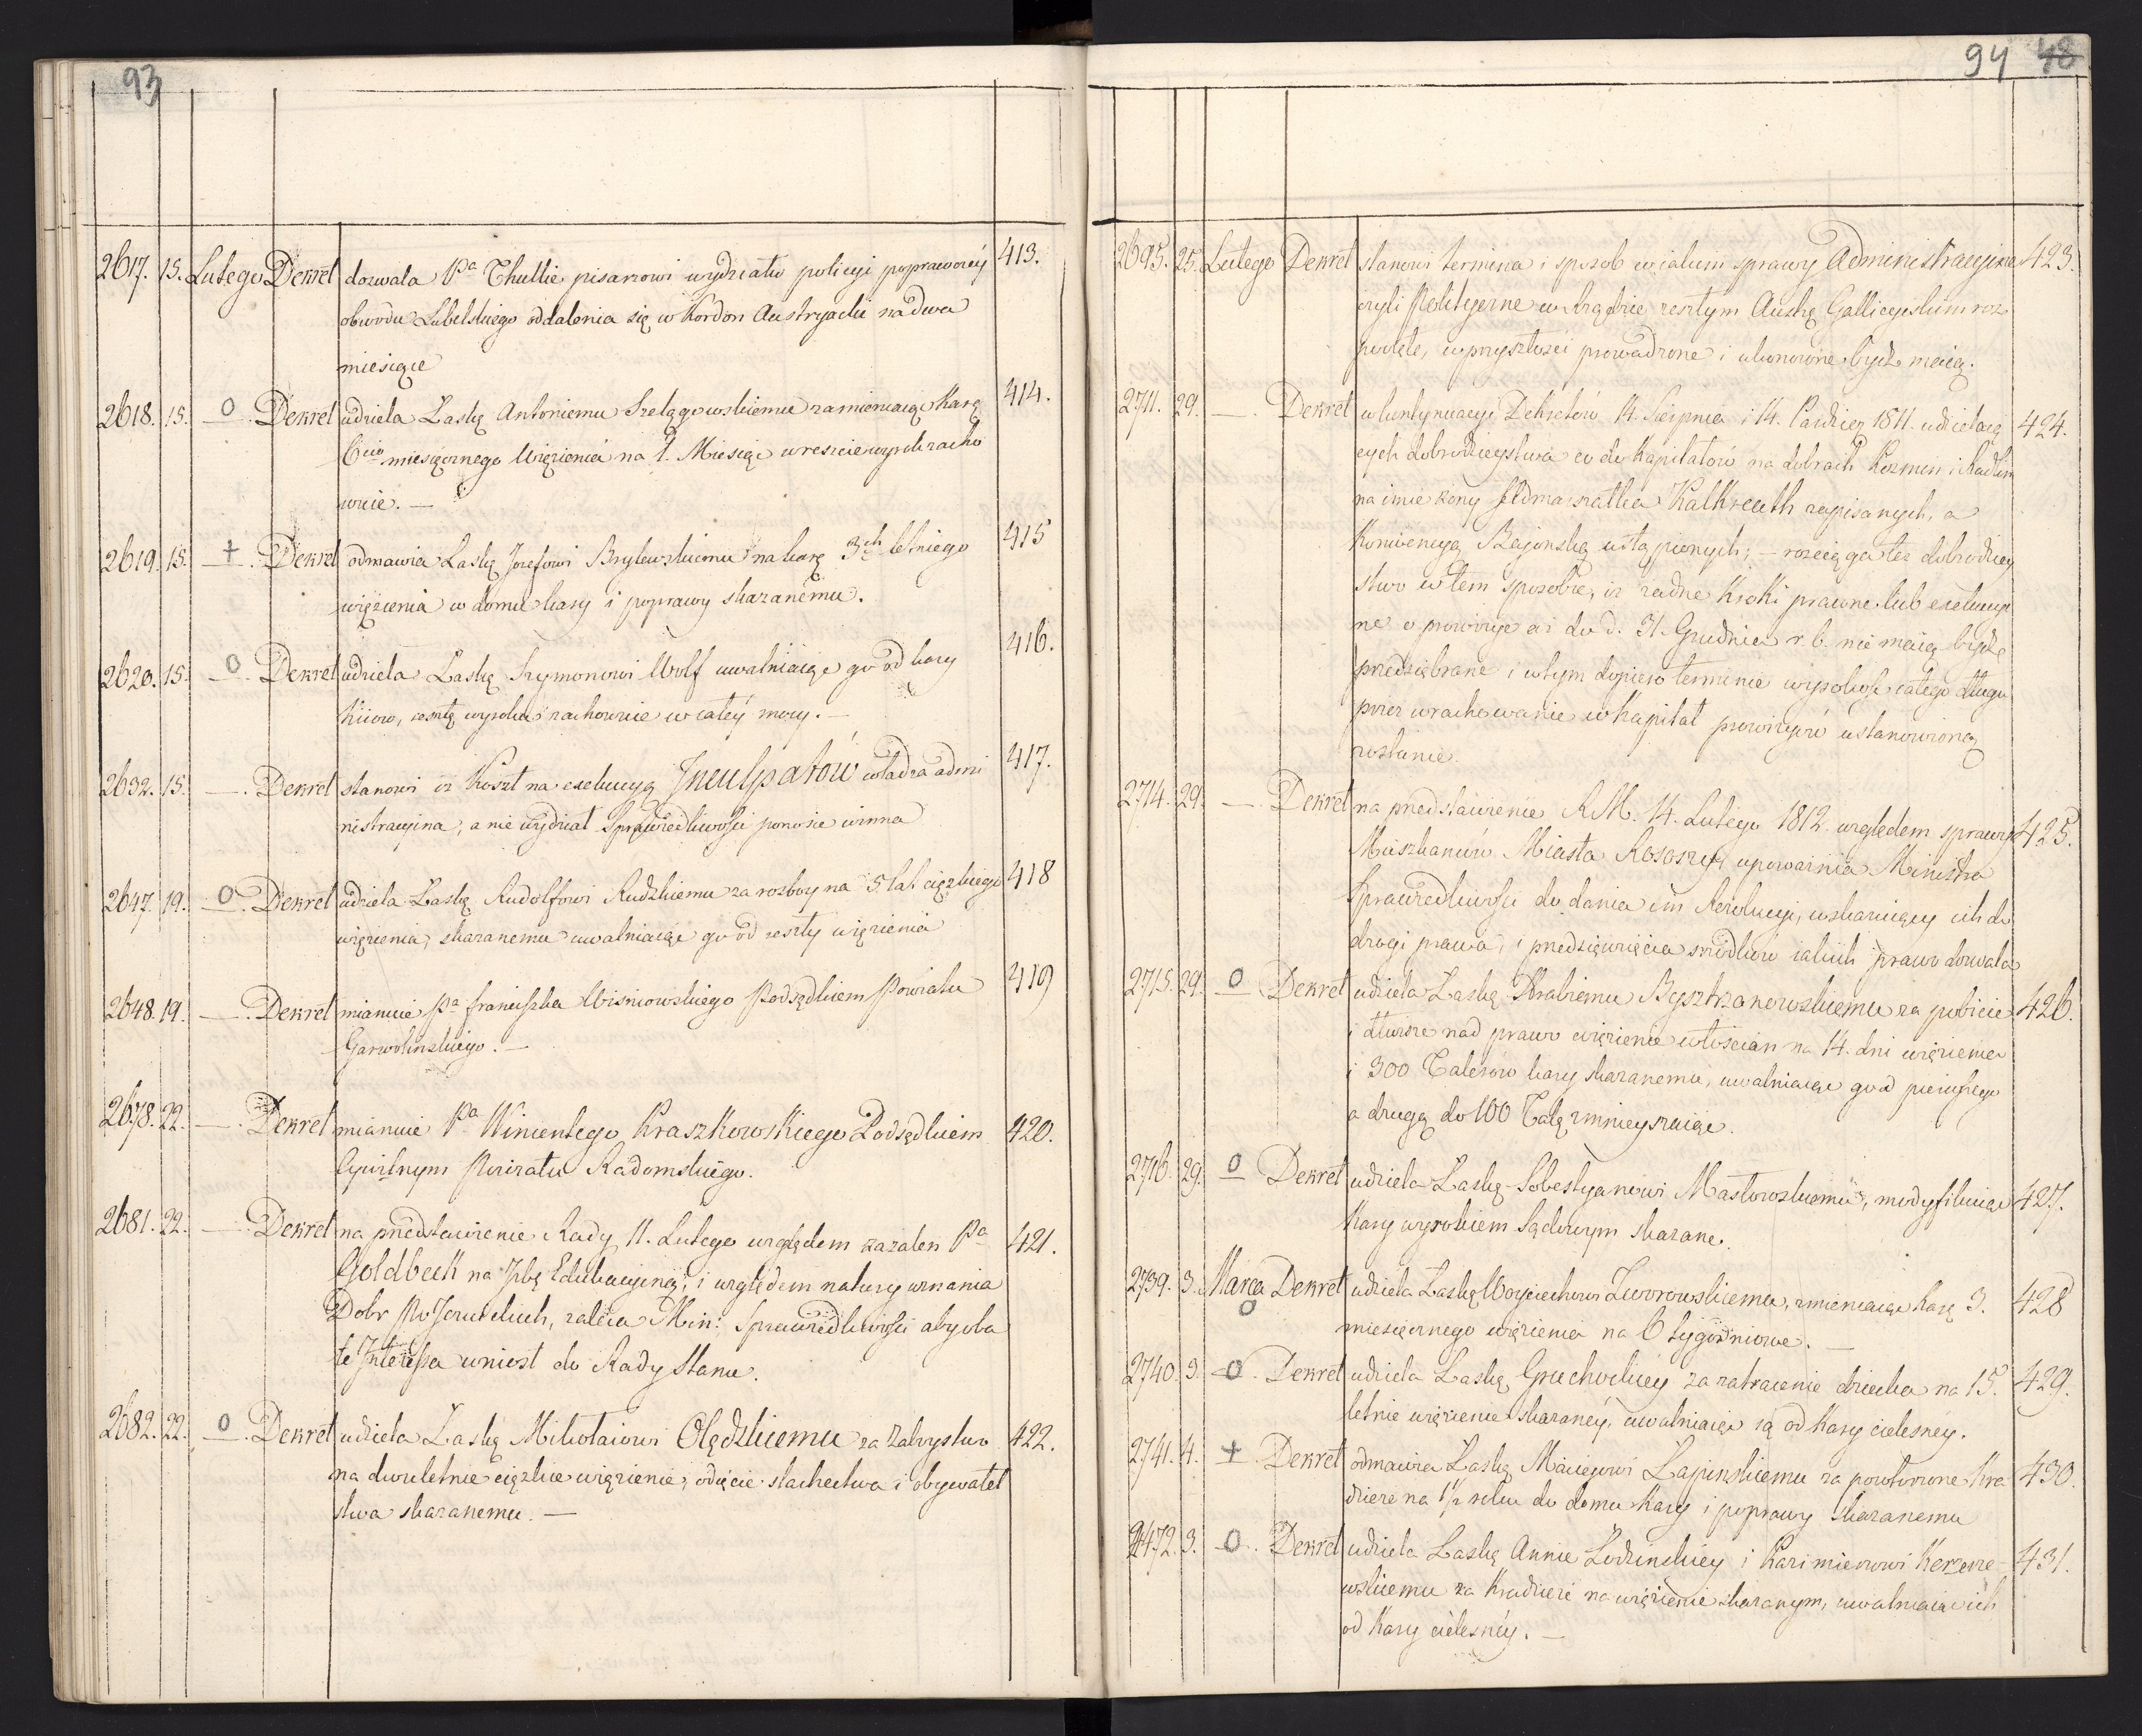 93
2617. 15. Lutego Dekret dozwala Pa Thullie pisarzowi wydziału policyi poprawczéy 413.
obwodu Lubelskiego oddalenia się w Kordon Austryacki na dwa
miesiące
2618. 15. O Dekret udziela Łaskę Antoniemu Szelągowskiemu zamieniaiąc Karę 414.
6cio miesięcznego Więzienia na 1. Miesiąc w reszcie wyrok zacho
wuie. —
2619. 15. + Dekret odmawia Łaskę Jozefowi Brylewskiemu na karę 3ch letniego 415
więzienia w domu kary i poprawy skazanemu.
2620. 15. O Dekret udziela Łaskę Szymonowi Wolf uwalniaiąc go od kary 416.
Kiiow, resztę wyroku zachowuie w całéy mocy. —
2632. 15. — Dekret stanowi iż Koszt na exekucyą Inculpatów władza admi 417.
nistracyina, a nie wydział Sprawiedliwości ponosić winna
2647. 19. O Dekret udziela Łaskę Rudolfowi Rudzkiemu za rozboy na 5 lat ciężkiego 418
więzienia, skazanemu uwalniaiąc go od reszty więzienia
2648. 19. — Dekret mianuie Pa Franciszka Wisniowskiego Podsędkiem Powiatu 419
Garwolinskiego. —
2678. 22. — Dekret mianuie Pa Winientego Kraszkowskiego Podsędkiem 420.
Cywilnym Powiatu Radomskiégo.
2681. 22. — Dekret na przedstawienie Rady 11. Lutego względem zażaleń Pa 421.
Goldbeck na Izbę Edukacyiną, i względem natury uznania
Dobr Po Jezuickich, zaleca Min: Sprawiedliwości aby oba
te Interessa wniosł do Rady Stanu.
2682. 22. O Dekret udziela Łaskę Mikołaiowi Olędzkiemu za Zaboystwo 422.
na dwuletnie ciężkie więzienie, odięcie slachectwa i obywatel
stwa skazanemu. —
94 48
2695. 25. Lutego Dekret stanowi termina i sposob w iakim sprawy Administracyine 423.
czyli Polityczne w Urzędzie zeszłym Austr. Gallicyiskim roz
poczęte, w przyszłości prowadzone i ukonczone bydź maią.
2711. 29. — Dekret w kontynuacyi Dekretow 14. Sierpnia i 14. Pazdzier 1811. udzielaią 424.
cych dobrodzieystwa co do Kapitałow na dobrach Kozmin i Radlin
na imie żony Feldmarszałka Kalkreuth zapisanych, a
Konwencyą Bajonską ustąpionych; — rozciąga też dobrodziey
stwo w tem sposobie, iż żadne Kroki prawne lub exekucyi
ne o prowizye aż do d. 31. Grudnia r. b. nie maią bydź
przedsiębrane i w tym dopiero terminie wysokość całego długu
przez wrachowanie w Kapitał prowizyow ustanowioną
zostanie.
2714. 29. — Dekret na przedstawienie R.M. 14. Lutego 1812. względem sprawy 425.
Mieszkancow Miasta Rososzy, upoważnia Ministra
Sprawiedliwości do dania im Rezolucyi, wskazuiącey ich do
drogi prawa, i przedsięwzięcia srodkow iakich prawo dozwala
2715. 29. O Dekret udziela Łaskę Hrabiemu Bystrzanowskiemu za pobicie 426.
i dłuższe nad prawo więzienie włościan na 14. dni więzienia
i 300 Talerow kary skazanemu, uwalniaiąc go od pierwszego
a drugą do 100 Tal. zmnieyszaiąc.
2716. 29. O Dekret udziela Łaskę Sobestyanowi Masłowskiemu, modyfikuiąc 427.
Kary wyrokiem Sądowym skazane.
2739. 3. Marca O Dekret udziela Łaskę Woyciechowi Zworowskiemu, zmieniaiąc Karę 3. 428
miesięcznego więzienia na 6 tygodniowe. —
2740. 3. O Dekret udziela Łaskę Gruchockiey za zatracenie dziecka na 15. 429.
letnie więzienie skazanéy, uwalniaiąc ią od Kary cielesnéy.
2741. 4. + Dekret odmawia Łaskę Macieiowi Łapinskiemu za powtorzone Kra 430.
dzieże na 1½ roku do domu Kary i poprawy skazanemu
2472. 3. O Dekret udziela Łaskę Annie Lodzinskiey i Kazimierzowi Kerzene- 431.
wskiemu za Kradzież na więzienie skazanym, uwalniaiąc ich
od Kary cielesnéy. —